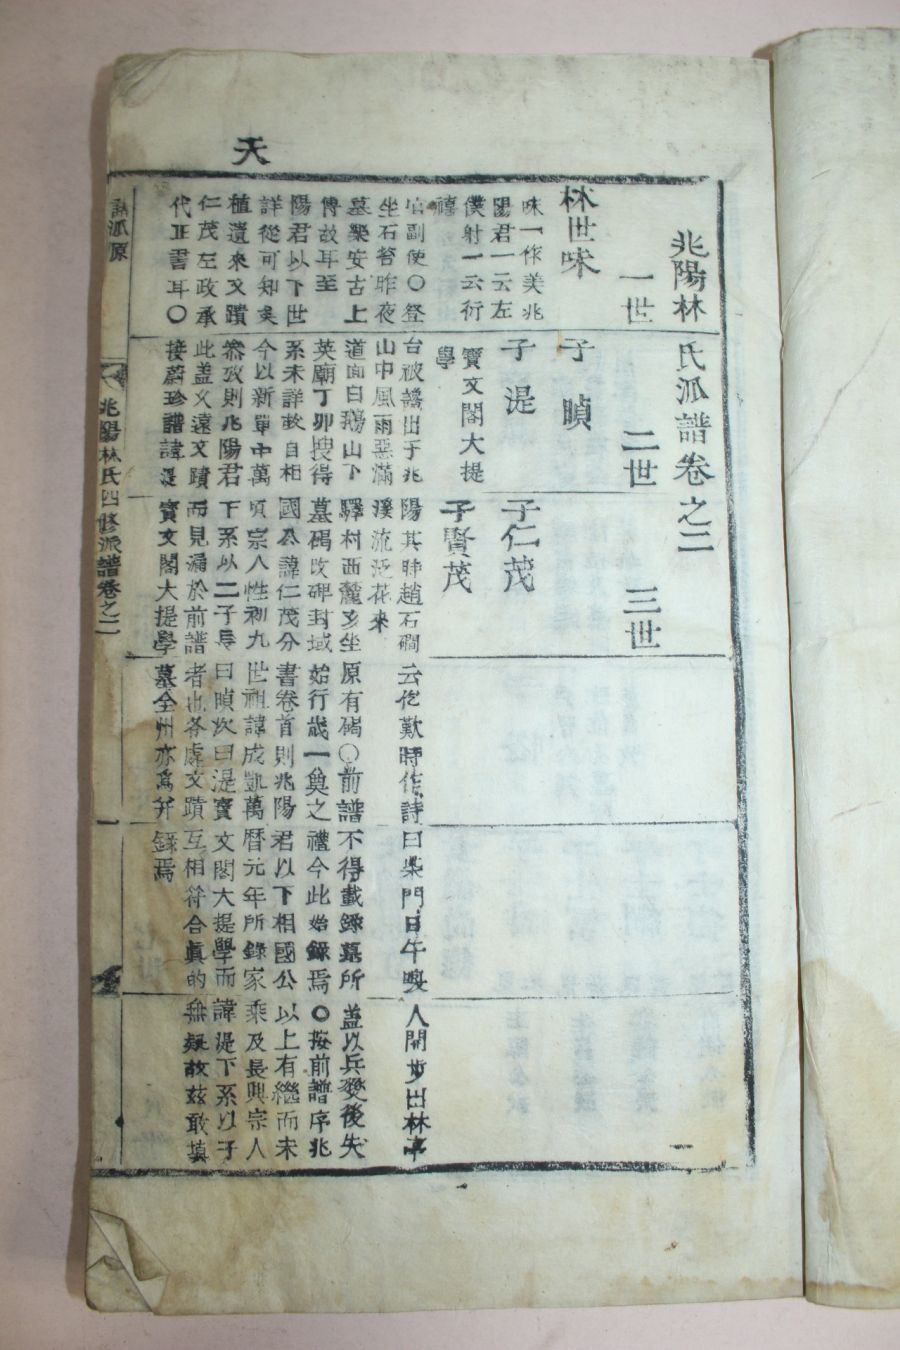 天
兆陽林氏派譜卷之二 一
一世 二世 三世
林世味 子
味一作美兆
陽君一云左
僕射一云衍
禧
子湜 子仁茂
寶文閣大提
學
子賢茂
副使〇登台被謫出于兆陽其時趙石磵云仡歎時作詩曰柴門日午喚人開步出林亭
坐石苔昨夜山中風雨惡滿溪流泛花來
墓樂安古上道面白鷄山下驛村西麓亥坐原有碣〇前譜不得載錄墓所盖以兵變後失
傳故耳至英廟丁卯搜得墓碣改碑封域始行歲一奠之禮今此始錄焉〇按前譜序兆
陽君以下世系未詳故自相國公諱仁茂分書卷首則兆陽君以下相國公以上有繼而未
詳從可知矣今以新單中萬頃宗人性初九世祖諱成凱萬曆元年所錄家乘及長興宗人
植遺來文蹟叅攷則兆陽君下系以二子長曰次曰湜寶文閣大提學而諱湜下系以子
仁茂左政承此盖久遠文蹟而見漏於前譜者也各處文蹟互相符合眞的無疑故玆敢填
代正書耳〇接蔚珍譜諱湜寶文閣大提學墓全州亦爲幷錄焉
派原
兆陽林氏四修派譜卷之二
一